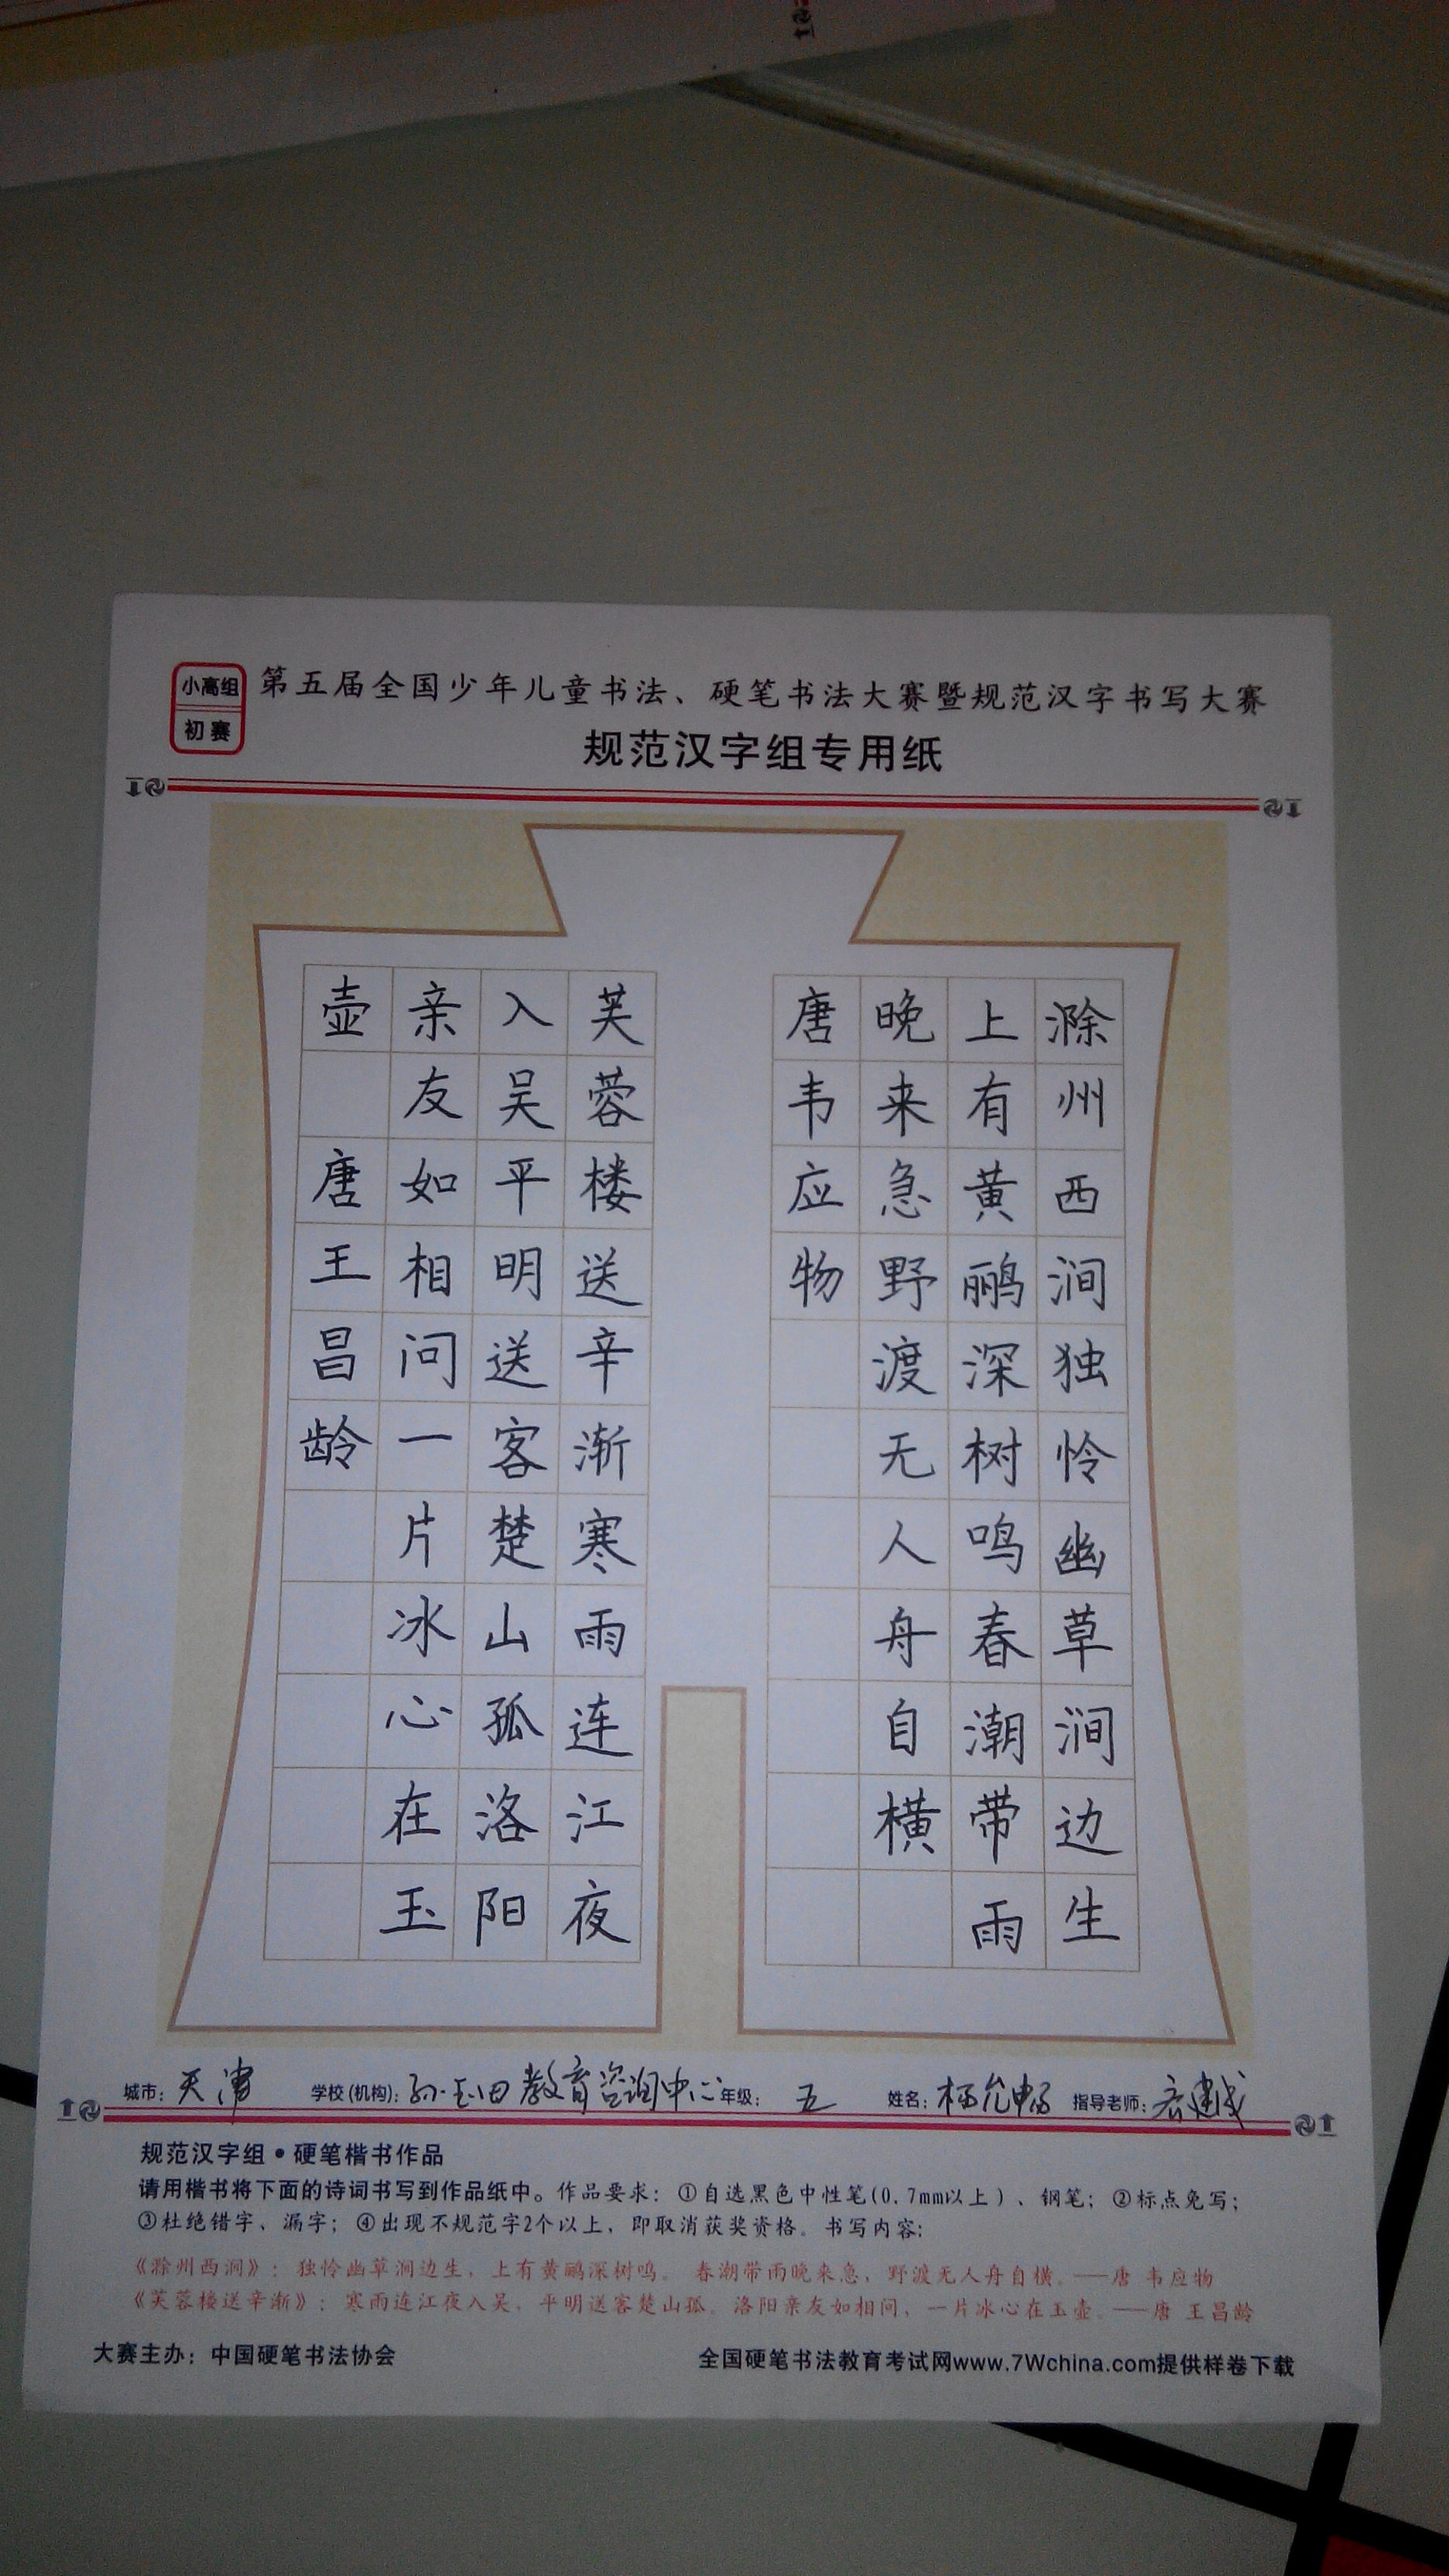 小高组
初赛
第五届全国少年儿童书法、硬笔书法大赛暨规范汉字书写大赛
规范汉字组专用纸
滁州西涧独怜幽草涧边生
上有黄鹂深树鸣春潮带雨
晚来急野渡无人舟自横
唐韦应物
芙蓉楼送辛渐寒雨连江夜
入吴平明送客楚山孤洛阳
亲友如相问一片冰心在玉
壶 唐王昌龄
城市：天津 学校(机构)：孙玉田教育咨询中心 年级：五 姓名：杨允畅 指导老师：
规范汉字组•硬笔楷书作品
请用楷书将下面的诗词书写到作品纸中。作品要求：①自选黑色中性笔(0.7mm以上）、钢笔；②标点免写；
③杜绝错字、漏字；④出现不规范字2个以上，即取消获奖资格。书写内容：
《滁州西涧》：独怜幽草涧边生，上有黄鹂深树鸣。 春潮带雨晚来急，野渡无人舟自横。——唐 韦应物
《芙蓉楼送辛渐》：寒雨连江夜入吴，平明送客楚山孤。洛阳亲友如相问，一片冰心在玉壶。——唐 王昌龄
大赛主办：中国硬笔书法协会 全国硬笔书法教育考试网www.7Wchina.com提供样卷下载